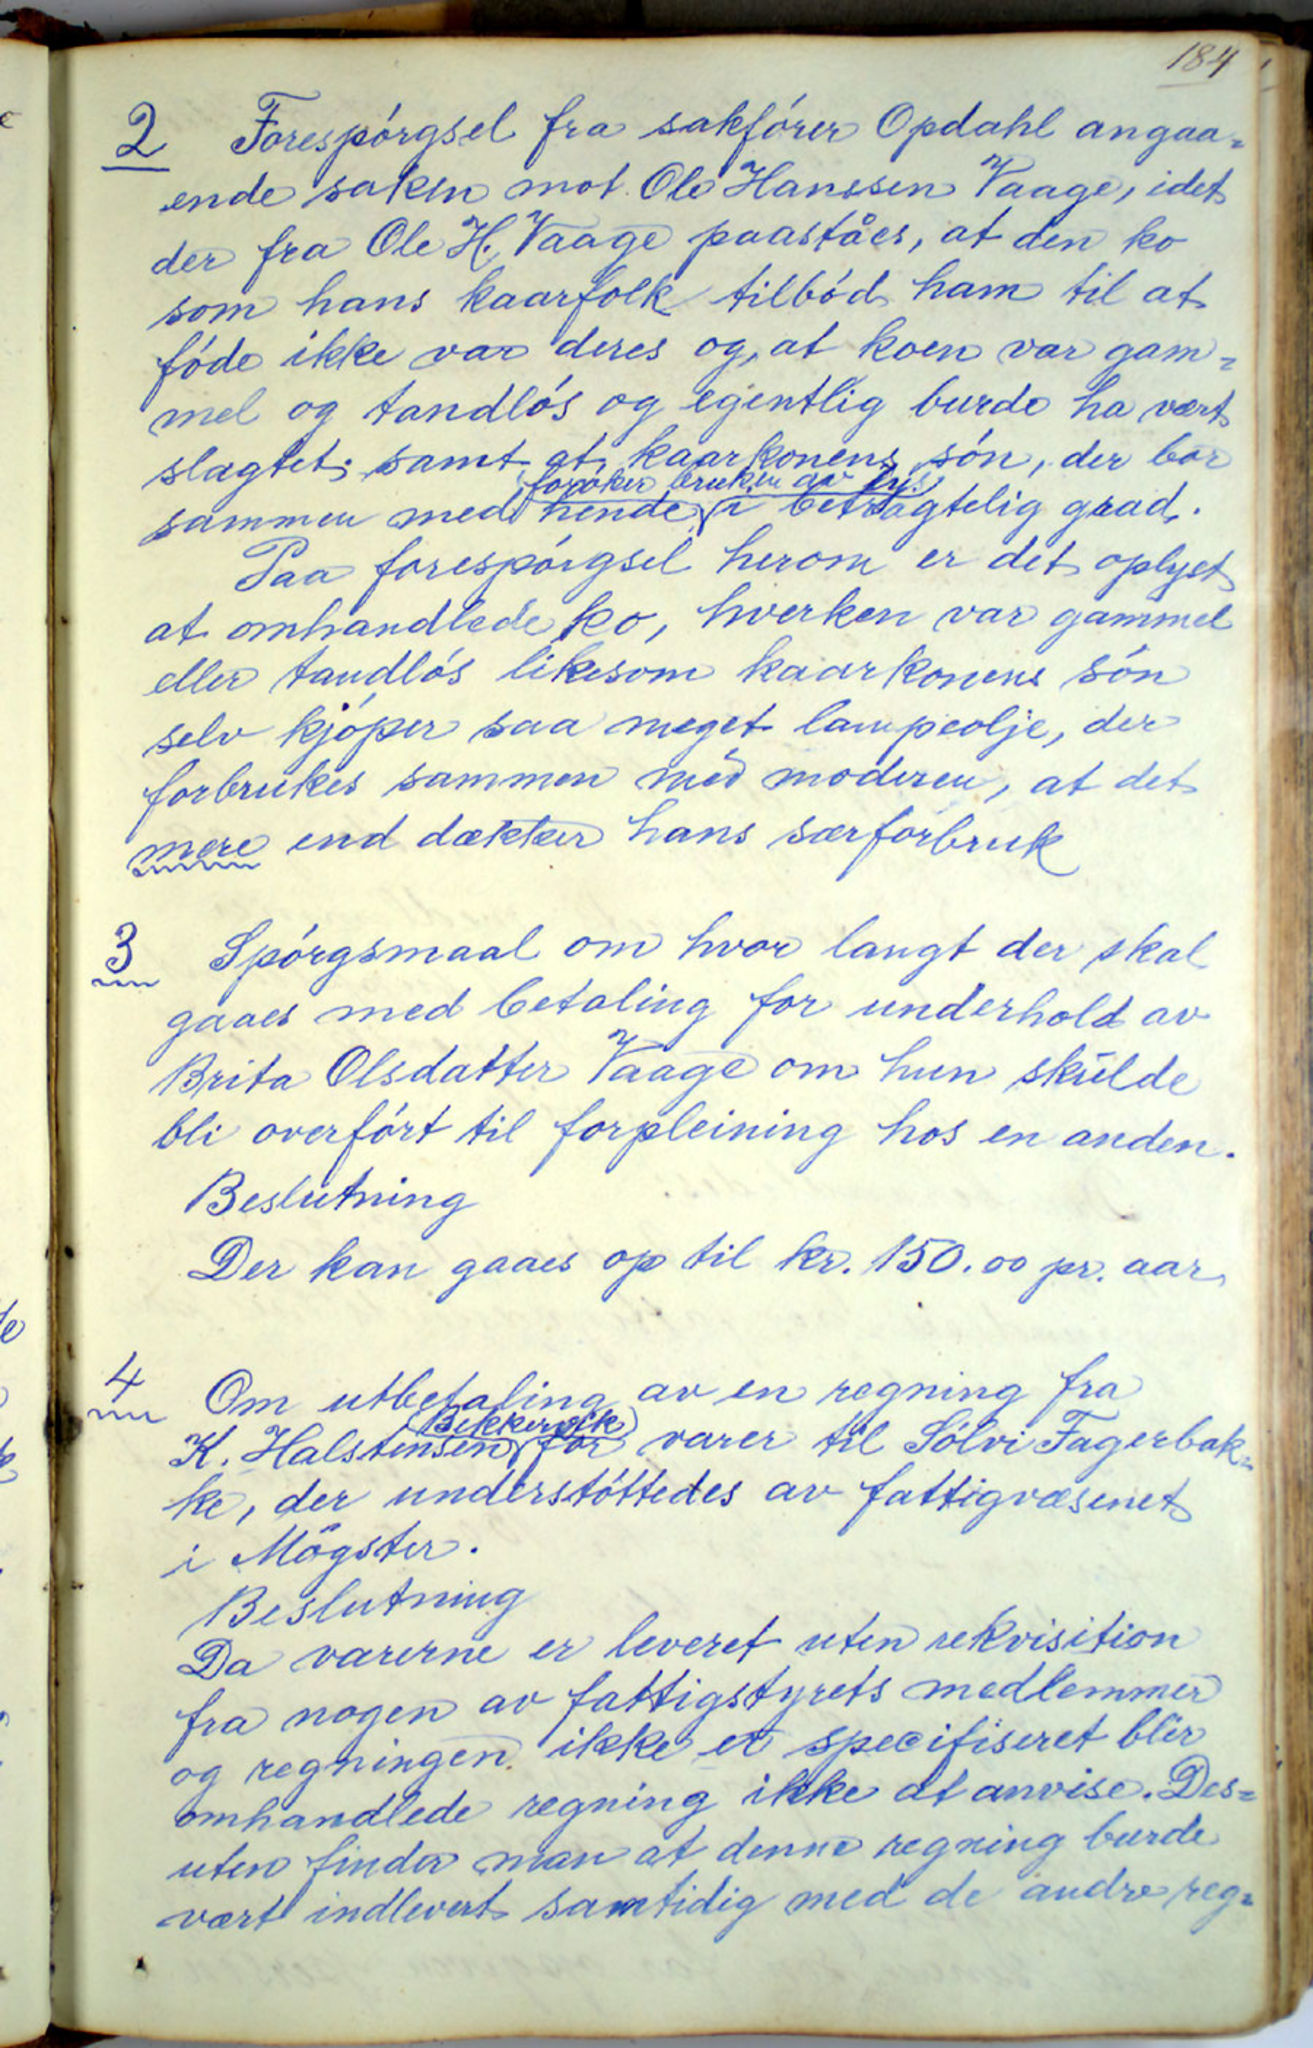 184
2 Forespórgsel fra sakfórer Opdahl angaa-
ende saken mot Ole Hanssen Vaage, idet
der fra Ole H. Vaage paaståes, at den ko
som hans kaarfolk tilbód ham til at
föde ikke var deres og, at koen var gam-
mel og tandlós og egentlig burde ha vært
slagtet; samt at kaarkonens són, der bor
forøker bruken av lys
sammen med hende i betragtelig grad.
Paa forespórgsel herom er det oplyst
at omhandlede ko, hverken var gammel
eller tandlós likesom kaarkonens són
selv kjóper saa meget lampeolje, der
forbrukes sammen med moderen, at det
mere end dækker hans særforbruk
3 Spórgsmaal om hvor langt der skal
gaaes med betaling for underhold av
Brita Olsdatter Vaage om hun skulde
bli overfórt til forpleining hos en anden.
Beslutning
Der kan gaaes op til kr. 150.00 pr. aar.
4 Om utbetaling av en regning fra
Bekkervik
K. Halstensen for varer til Sölvi Fagerbak-
ke, der understöttedes av fattigvæsenet
i Mögster.
Beslutning
Da varerne er leveret uten rekvisition
fra nogen av fattigstyrets medlemmer
og regningen ikke er specifiseret blir
omhandlede regning ikke at anvise. Des-
uten finder man at denne regning burde
vært indlevert samtidig med de andre reg-